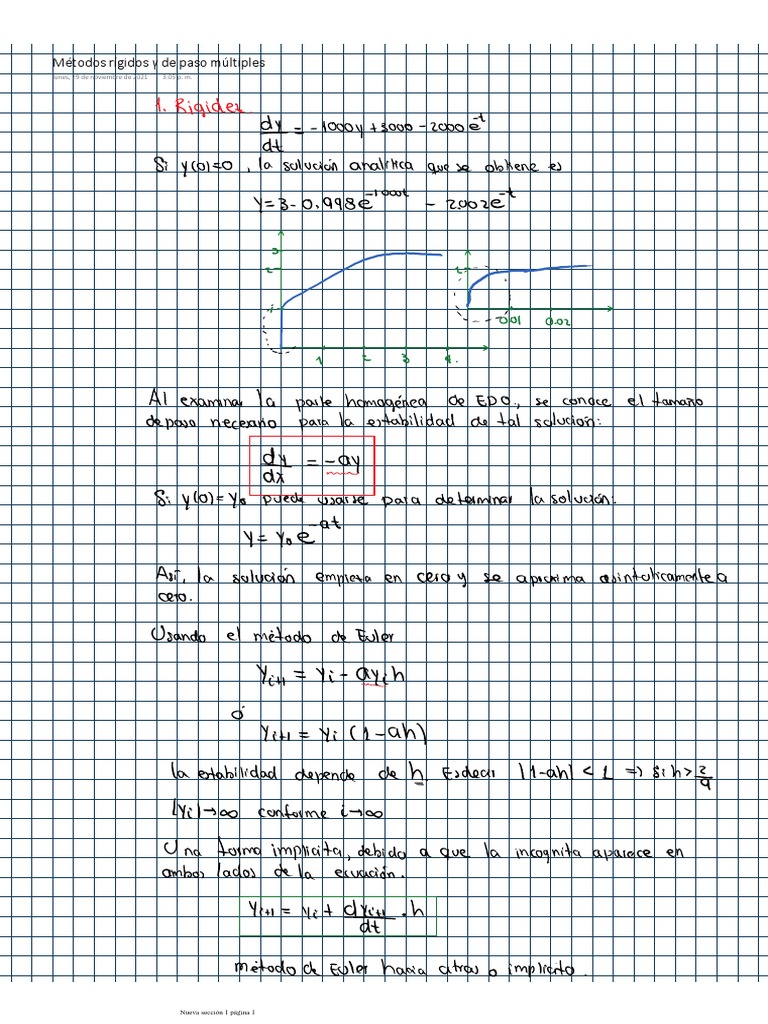 Métodos rígidos y de paso múltiples
lunes, 29 de noviembre de 2021 3:05 p. m.
1. Rigidez
dy/dt = -1000y + 3000 - 2000 e^-t
Si y(0)=0, la solución analítica que se obtiene es
y = 3 - 0.998e^-1000t - 2.002e^-t
3
2
1
1 2 3 4.
2
0.01 0.02
Al examinar la parte homogénea de EDO., se conoce el tamaño
de paso necesario para la estabilidad de tal solución:
dy/dx = -ay
Si y(0)=y₀ puede usarse para determinar la solución:
y = y₀ e^-at
Así, la solución empieza en cero y se aproxima asintóticamente a
cero.
Usando el método de Euler
y_i+1 = y_i - a y_i h
ó
y_i+1 = y_i (1-ah)
la estabilidad depende de h. Es decir |1-ah| < 1 => si h > 2/a
|y_i| → ∞ conforme i → ∞
Una forma implícita, debido a que la incognita aparece en
ambos lados de la ecuación.
y_i+1 = y_i + dy_i+1/dt . h
método de Euler hacia atras o implicito.
Nueva sección 1 página 1